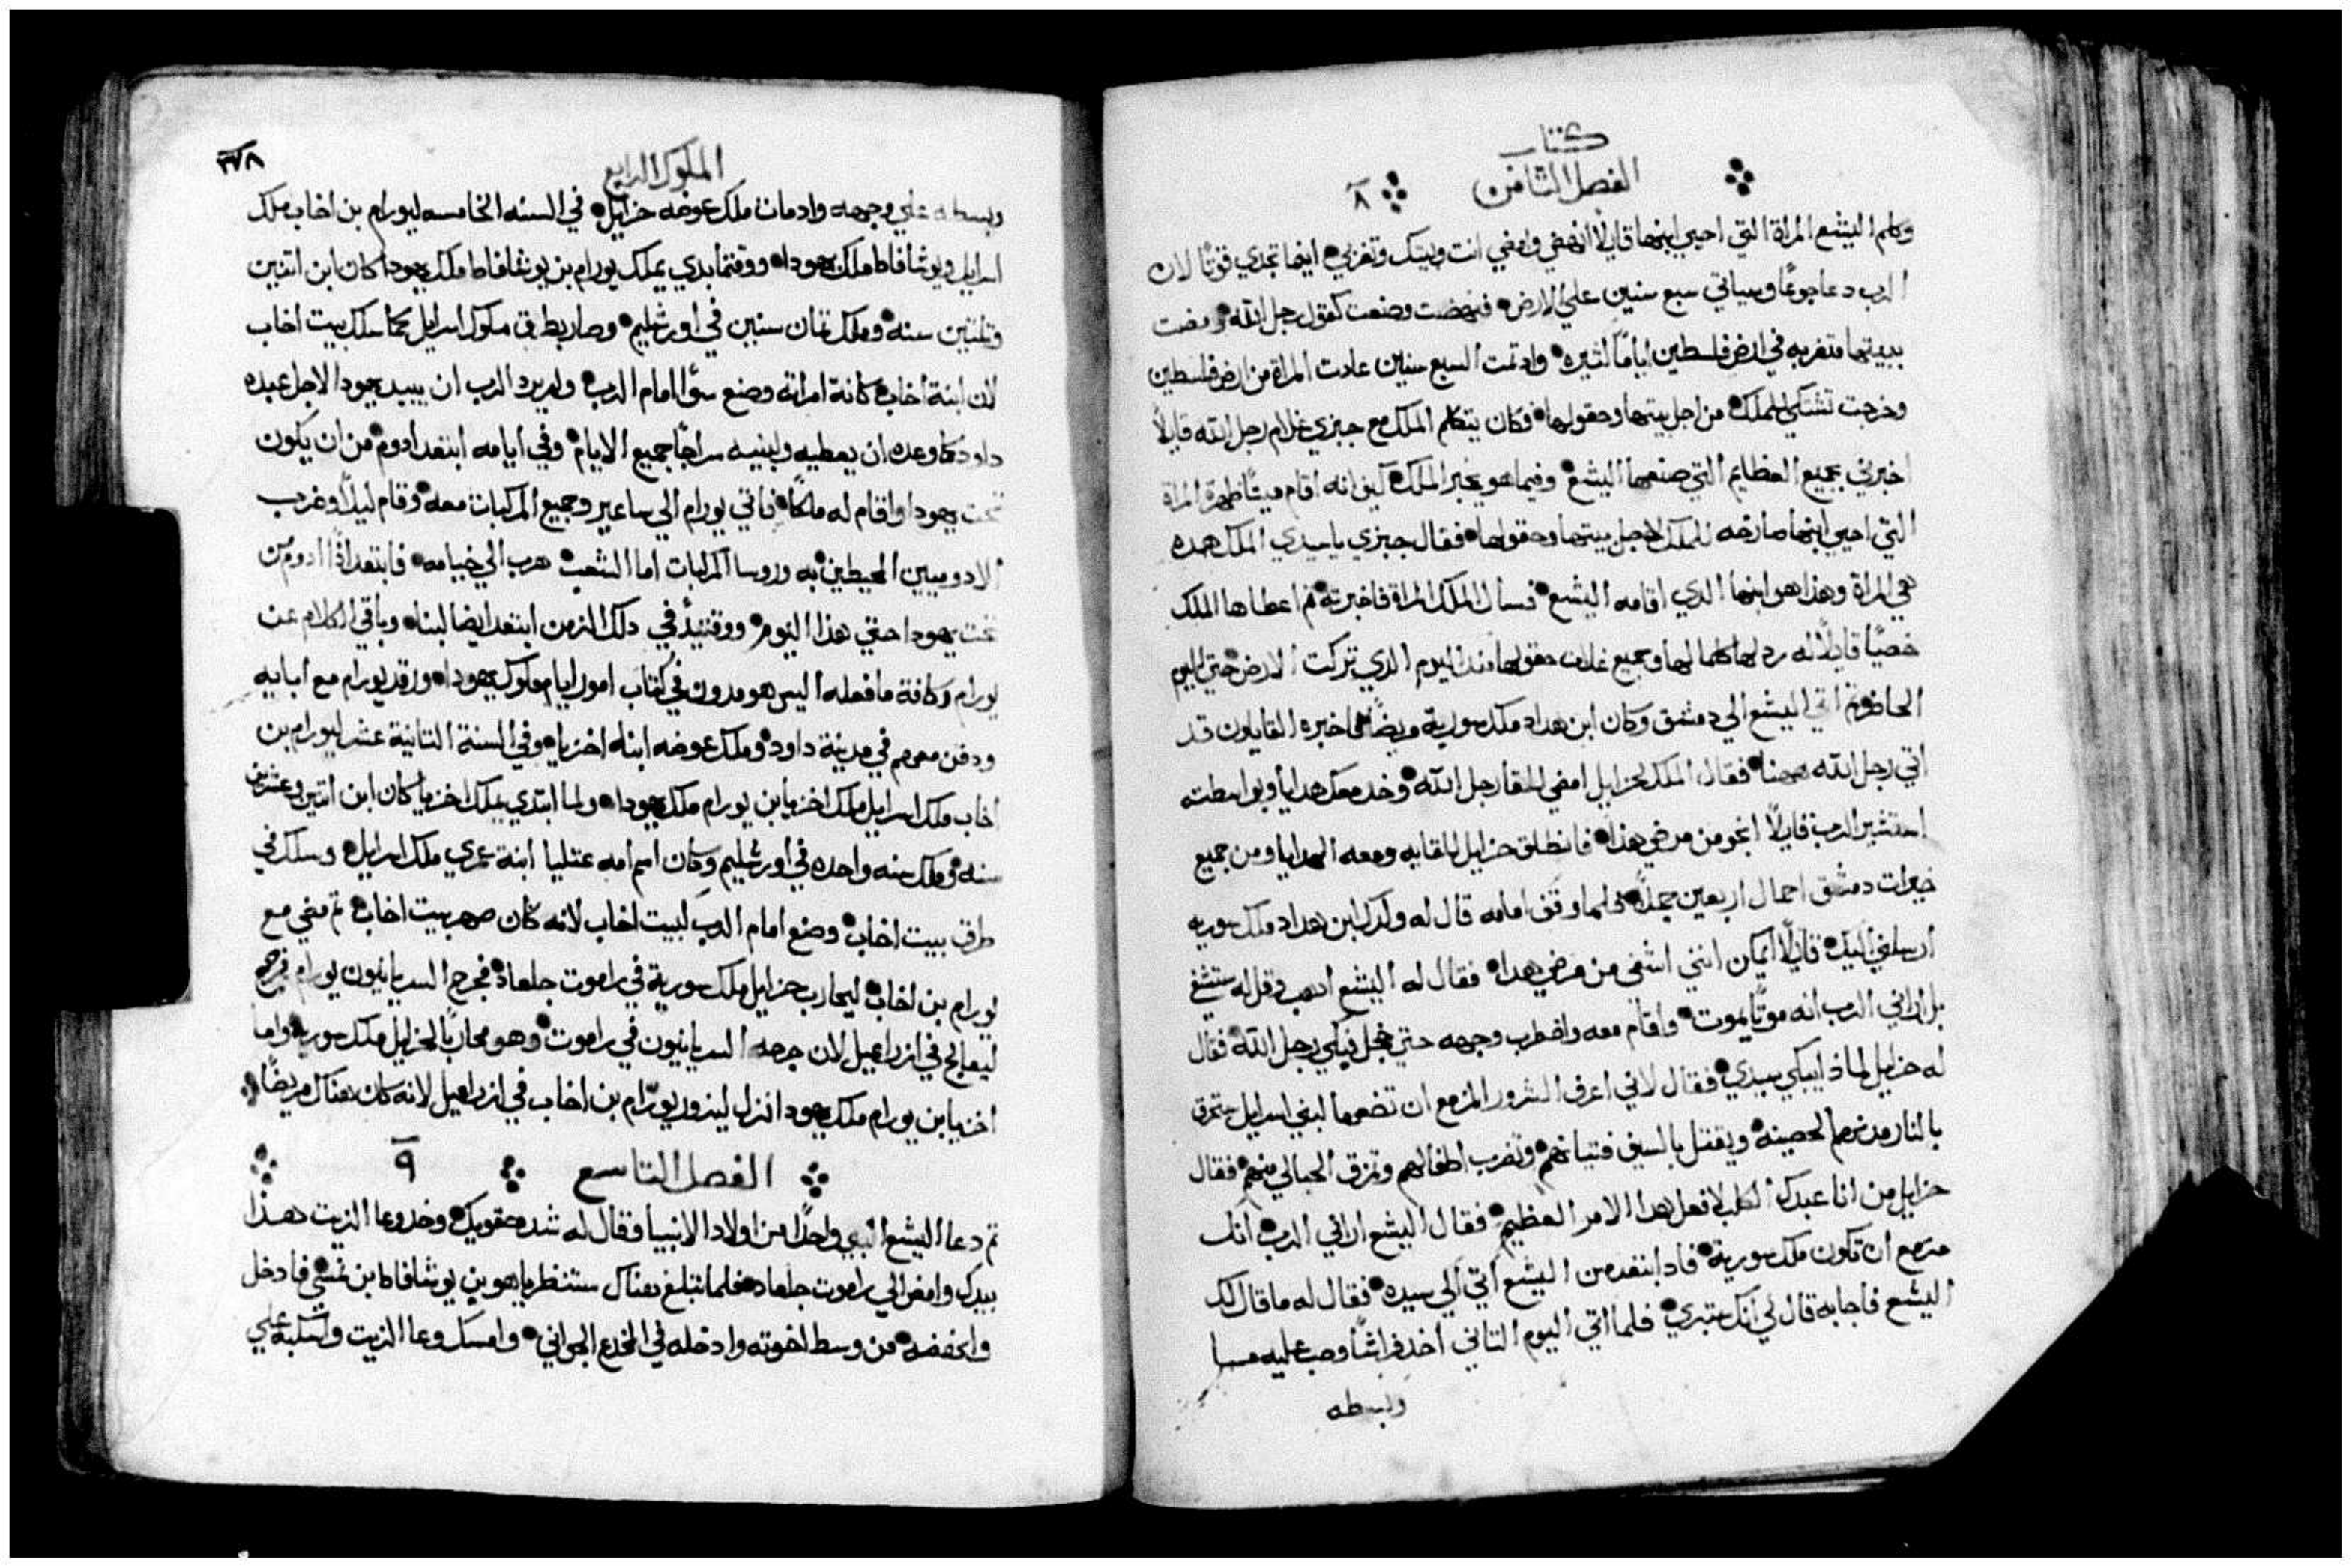 كتاب
الفصل الثامن ٨
وكلم اليشع المراة التي احيي ابنها قايلاً انهضي وامضي انت وبيتك وتغربي اينما تجدي قوتًا لان
الرب دعا جوعًا وسياتي سبع سنين علي الارض فنهضت وصنعت كقول رجل الله ومضت
ببيتها متغربه في ارض فلسطين ايامًا كثيره واد تمت السبع سنين عادت المراة من ارض فلسطين
وخرجت تشتكي للملك من اجل بيتها وحقولها فكان يتكلم الملك مع جيزي غلام رجل الله قايلاً
اخبرني بجميع العظايم التي صنعها اليشع وفيما هو يخبر الملك كيف انه اقام ميتًا ظهرة المراة
التي احيي ابنها صارخه للملك لاجل بيتها وحقولها فقال جيزي يا سيدي الملك هده
هي المراة وهذا هو ابنها الدي اقامه اليشع فسال الملك المراة فاخبرته ثم اعطاها الملك
خصيًا قايلاً له رد لها كلما لها وجميع غلات حقولها مند اليوم الدي تركت الارض حتي اليوم
الحاضر ثم اتي اليشع الي دمشق وكان ابن هداد ملك سورية مريضًا فاخبره القايلون قد
اتي رجل الله ههنا فقال الملك لحزايل امضي للقا رجل الله وخد معك هدايا وبواسطته
استشير الرب قايلاً انجو من مرضي هذا فانطلق حزايل للقايه ومعه الهدايا ومن جميع
خيرات دمشق احمال اربعين جملاً فلما وقف امامه قال له ولدك ابن هداد ملك سوريه
ارسلني اليك قايلاً ايمكن انني اشفي من مرضي هدا فقال له اليشع ادهب وقل له ستشفي
بل اراني الرب انه موتًا يموت واقام معه واضطرب وجهه حتي خجل فبكي رجل الله فقال
له حزايل لماذا يبكي سيدي فقال لاني اعرف الشرور المزمع ان تضعها لبني اسرايل ستحرق
بالنار مدنهم الحصينه ويقتل بالسيف فتيانهم وتضرب اطفالهم وتمزق الحبالي منهم فقال
حزايل من انا عبدك الكلب لافعل هدا الامر العظيم فقال اليشع اراني الرب انك
مزمع ان تكون ملك سورية فاد ابتعد من اليشع اتي الي سيده فقال له ما قال لك
اليشع فاجابه قال لي انك ستبري فلما اتي اليوم التاني اخد فراشًا وصب عليه ميا
وبسطه
الملوك الرابع
٣٧٨
وبسطه علي وجهه واد مات ملك عوضه حزايل في السنه الخامسه ليورام بن اخاب ملك
اسرايل ويوشافاط ملك يهودا ووقتما بدي يملك يورام بن يوشافاط ملك يهودا كان ابن اتنين
وتلتين سنه وملك تمان سنين في اورشليم وصار بطرق ملوك اسرايل كما سلك بيت اخاب
لان ابنة اخاب كانة امراته وصنع سؤًا امام الرب ولم يرد الرب ان يبيد يهودا لاجل عبده
داود كما وعده ان يعطيه ولبنيه سراجًا جميع الايام وفي ايامه ابتعد ادوم من ان يكون
تحت يهودا واقام له ملكًا فاتي يورام الي ساعير وجميع المركبات معه وقام ليلاً وضرب
الادوميين المحيطين به وروسا المركبات اما الشعب هرب الي خيامه فابتعد اذًا ادوم من
تحت يهودا حتي هذا اليوم ووقتيذٍ في دلك الزمن ابتعد ايضا لبنا وباقي الكلام عن
يورام وكافة ما فعله اليس هو مدون في كتاب امور ايام ملوك يهودا ورقد يورام مع ابايه
ودفن معهم في مدينة داود وملك عوضه ابنه اخزيا وفي السنة التانية عشر ليورام بن
اخاب ملك اسرايل ملك اخزيا بن يورام ملك يهودا ولما ابتدي يملك اخزيا كان ابن اتنين وعشرين
سنه وملك سنه واحده في اورشليم وكان اسم امه عتليا ابنة عمري ملك اسرايل وسلك في
طرق بيت اخاب وصنع امام الرب كبيت اخاب لانه كان صهر بيت اخاب ثم مضي مع
يورام بن اخاب ليحارب حزايل ملك سورية في راموت جلعاد فجرح السريانيون يورام فرجع
ليتعالج في ازراعيل لان جرحه السريانيون في راموت وهو محاربًا لحزايل ملك سوريه واما
اخزيا بن يورام ملك يهودا نزل ليزور يورام بن اخاب في ازراعيل لانه كان هناك مريضًا
الفصل التاسع ٩
ثم دعا اليشع النبي واحدًا من اولاد الانبيا وقال له شد حقويك وخد وعا الزيت هذا
بيدك وامض الي راموت جلعاد فلما تبلغ هناك ستنظر ياهو بن يوشافاط بن نمشي فادخل
وانهضه من وسط اخوته وادخله في المخدع الجواني وامسك وعا الزيت واسكبه علي